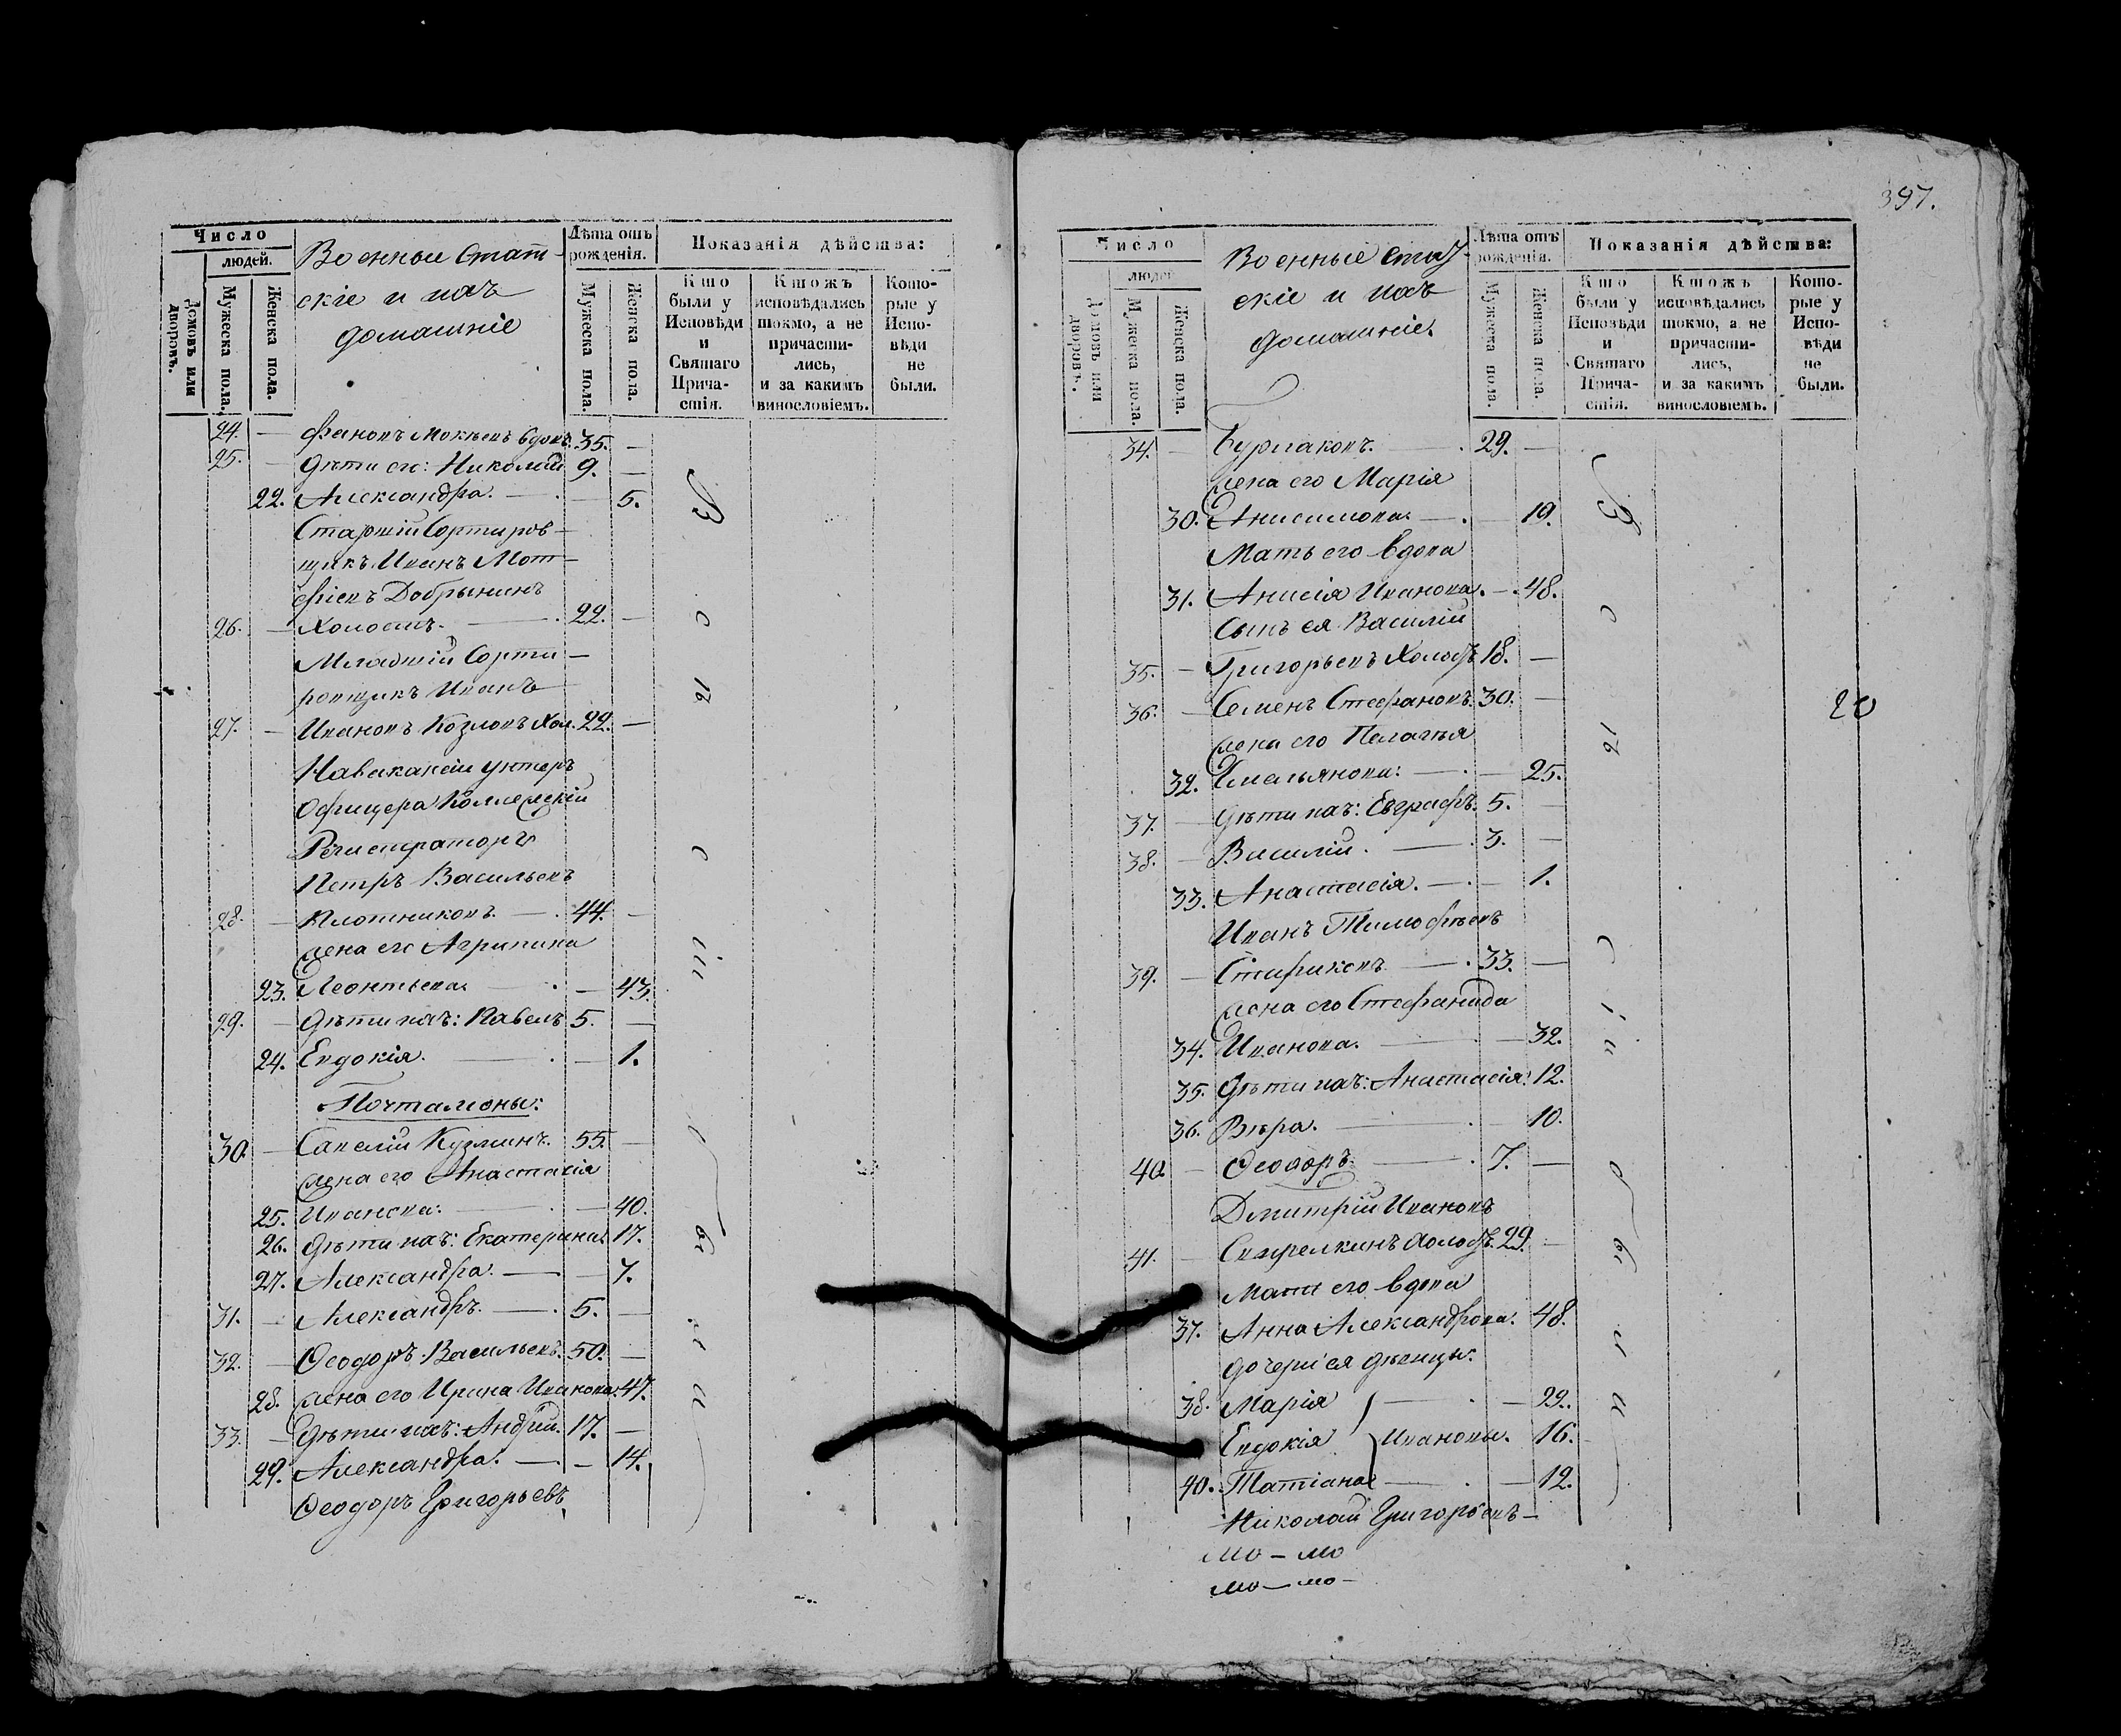 Число
людей.
Домовъ или дворовъ.
Мужеска пола.
Женска пола.
Военные Стат-
скіе и ихъ
домашніе
Лѣта отъ
рожденія.
Мужеска пола.
Женска пола.
Показанія дѣйства:
Кто были у Исповѣди и Святаго Прича-стія.
Ктожъ исповѣдались токмо, а не причасти-лись, и за какимъ винословіемъ.
Кото-рые у Испо-вѣди не были.
24. — фановъ Мокѣевъ вдовъ. 35. —
25. — дѣти его: Николай 9. —
22. Александра. — — 5.
Старшій Сортиров-
щикъ Иванъ Мат-
фіевъ Добрынинъ
26. — Холостъ. — 22. —
Младшій Сорти-
ровщикъ Иванъ
27. — Ивановъ Козловъ Хол. 22. —
На вакансіи унтеръ
Офицера Коллежскій
Регистраторъ
Петръ Васильевъ
28. — Плотниковъ. — 44. —
жена его Агрипина
23. Леонтьева. — — 43.
29. — дѣти ихъ: Павелъ 5. —
24. Евдокія. — — 1.
Почталіоны:
30. — Савелій Кузминъ. 55. —
жена его Анастасія
25. Иванова. — — 40.
26. дѣти ихъ: Екатерина. 17.
27. Александра. — — 7.
31. — Александръ. — 5. —
32. — Ѳеодоръ Васильевъ. 50. —
28. жена его Ирина Иванова. 47.
33. — дѣти ихъ: Андрей. 17. —
29. Александра. — — 14.
Ѳеодоръ Григорьевъ
397.
Число
людей
Домовъ или дворовъ.
Мужеска пола.
Женска пола.
Военные стат-
скіе и ихъ
домашніе.
Лѣта отъ
рожденія.
Мужеска пола.
Женска пола.
Показанія дѣйства:
Кто были у Исповѣди и Святаго Прича-стія.
Ктожъ исповѣдались токмо, а не причасти-лись, и за какимъ винословіемъ.
Кото-рые у Испо-вѣди не были.
34. — Бурлаковъ. — 29. —
жена его Марія
30. Анисимова. — — 19.
Мать его вдова
31. Анисія Иванова. — 48.
Сынъ ея Василій
35. — Григорьевъ Холостъ 18. —
36. — Семенъ Стефановъ. 30. —
жена его Пелагѣя
32. Емельянова. — — 25.
37. — дѣти ихъ: Евграфъ. 5. —
38. — Василій. — 3. —
33. Анастасія. — — 1.
Иванъ Тимофѣевъ
39. — Стариковъ — 33. —
жена его Стефанида
34. Иванова. — — 32.
35. дѣти ихъ: Анастасія. 12.
36. Вѣра. — — 10.
40. — Ѳеодоръ. — 7. —
Дмитрій Ивановъ
41. — холостъ. 29. —
Мать его вдова
37. Анна Александрова. 48.
дочери ея дѣвицы:
38. Марія — — 22.
Евдокія } Ивановы. 16.
40. Татіана — — 12.
Николай Григорьевъ —
20